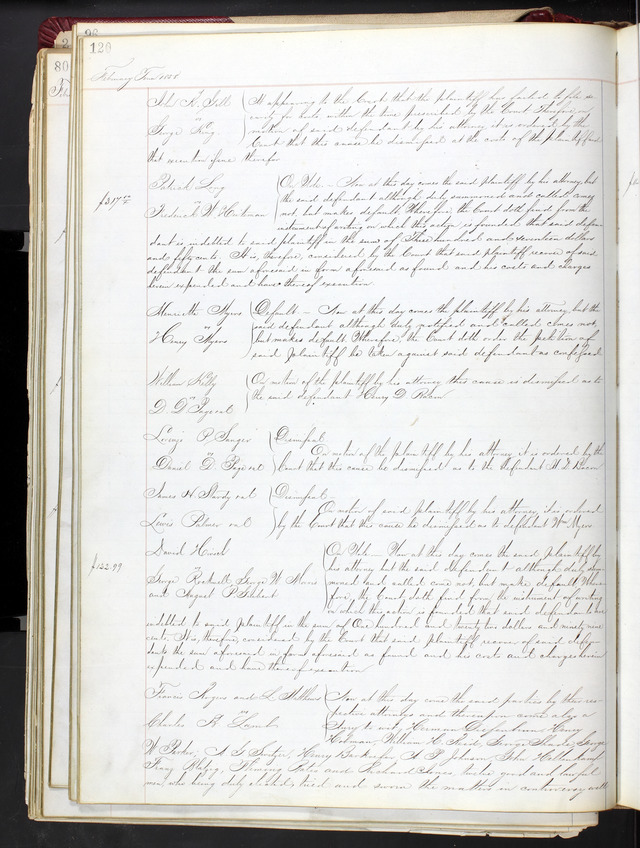 120
80
February Term 1858
John K.
vs
George King
It appearing to the Court that the plaintiff has failed to file se
curity for costs within the time prescribed by the Court Therefore on
motion of said defendant by his attorney it is ordered by the
Court that this cause be dismissed at the costs of the plaintiff and
that execution issue therefor
$317.50
Patrick Long
vs
Frederick W
On Note – Now at this day comes the said plaintiff by his attorney, but
the said defendant although duly summoned and called comes
not but makes default Therefore, the Court doth find from the
instrument of writing on which this action is founded that said defen-
dant is indebted to said plaintiff in the sum of Three hundred and seventeen dollars
and fifty cents. It is, therefore, considered by the Court that said plaintiff recover of said
defendant the sum aforesaid in form aforesaid as found and his costs and charges
herein expended and have thereof execution
Henrietta Myers
vs
Henry Myers
Default – Now at this day comes the plaintiff by his attorney, but the
said defendant although duly notified and called comes not,
but makes default Therefore, the Court doth order the petition of
said plaintiff be taken against said defendant as confessed
William Kelly
vs
D. D. Page et al
On motion of the plaintiff by his attorney this cause is dismissed as to
the said defendant Henry D. Bacon
Lorenzo P. Sanger
vs
Daniel D. Page et al
Dismissal
On motion of the plaintiff by his attorney it is ordered by the
Court that this cause be dismissed as to the defendant H. D. Bacon
James H. et al
vs
Lewis Palmer et al
Dismissal
On motion of said plaintiff by his attorney, it is ordered
by the Court that this cause be dismissed as to defendant Wm
$122.99
David
vs
George Rockwell, George W.
and August P.
On Note – Now at this day comes the said plaintiff by
his attorney but the said defendants although duly sum-
moned and called come not, but make default, There-
fore, the Court doth find from the instrument of writing
on which this action is founded that said defendants are
indebted to said plaintiff in the sum of One hundred and twenty two dollars and ninety nine
cents. It is, therefore, considered by the Court that said plaintiff recover of said defen-
dants the sum aforesaid in form aforesaid as found and his costs and charges herein
expended and have thereof execution
Francis Rogers and L. Matthews
vs
Charles H. Lamb
Now at this day come the said parties by their res-
pective attorneys and thereupon come also a
Jury to wit, Herman Henry
William H. George George
W. Parker, A. G. Henry A. P. Johnson, John
Franz Fleming and Richard Jones, twelve good and lawful
men, who being duly elected, tried and sworn the matters in controversy well